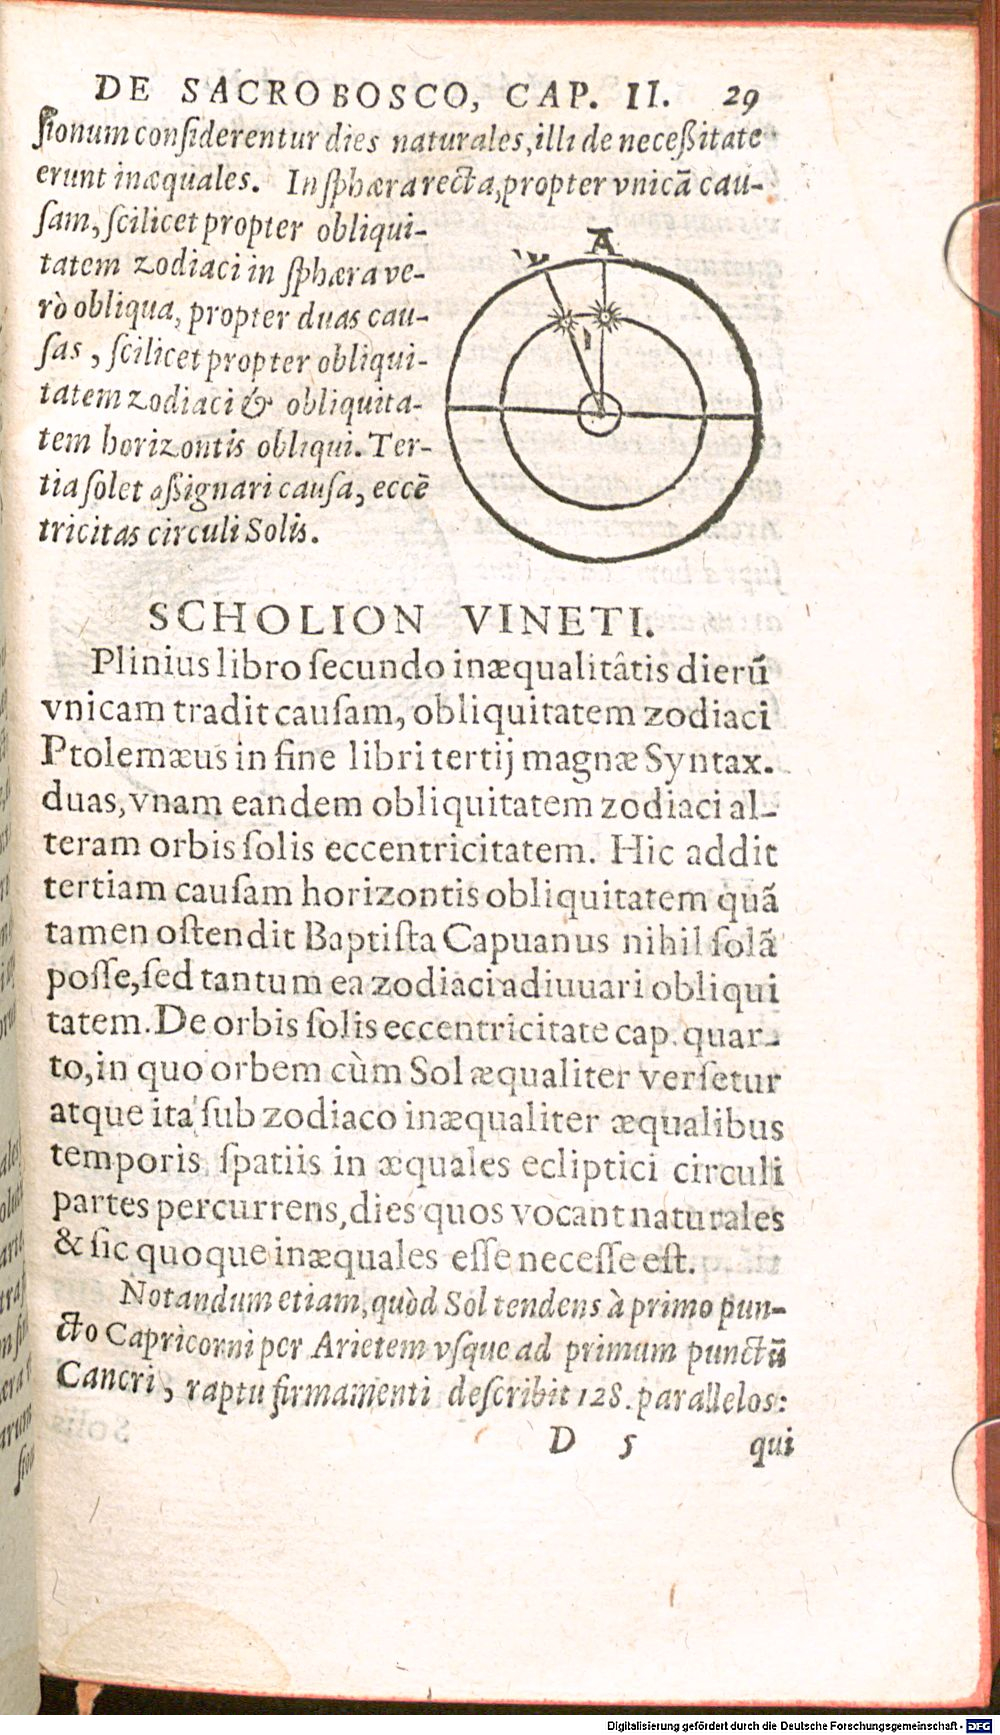 DE SACROBOSCO, CAP. II. 29
ſionum conſiderentur dies naturales, illi de neceßitate
erunt inæquales. In ſphæra recta, propter vnicā cau-
ſam, ſcilicet propter obliqui-
tatem zodiaci in ſphæra ve-
rò obliqua, propter duas cau-
ſas, ſcilicet propter obliqui-
tatem zodiaci & obliquita-
tem horizontis obliqui. Ter-
tia ſolet aßignari cauſa, eccē
tricitas circuli Solis.
A
SCHOLION VINETI.
Plinius libro ſecundo inæqualitâtis dierū
vnicam tradit cauſam, obliquitatem zodiaci
Ptolemæus in fine libri tertij magnæ Syntax.
duas, vnam eandem obliquitatem zodiaci al-
teram orbis ſolis eccentricitatem. Hic addit
tertiam cauſam horizontis obliquitatem quā
tamen oſtendit Baptiſta Capuanus nihil ſolā
poſſe, ſed tantum ea zodiaci adiuuari obliqui
tatem. De orbis ſolis eccentricitate cap. quar-
to, in quo orbem cùm Sol æqualiter verſetur
atque ita ſub zodiaco inæqualiter æqualibus
temporis ſpatiis in æquales ecliptici circuli
partes percurrens, dies quos vocant naturales
& ſic quoque inæquales eſſe neceſſe eſt.
Notandum etiam, quòd Sol tendens à primo pun-
cto Capricorni per Arietem vſque ad primum punctū
Cancri, raptu firmamenti deſcribit 128. parallelos:
D 5 qui
Digitalisierung gefördert durch die Deutsche Forschungsgemeinschaft - DFG